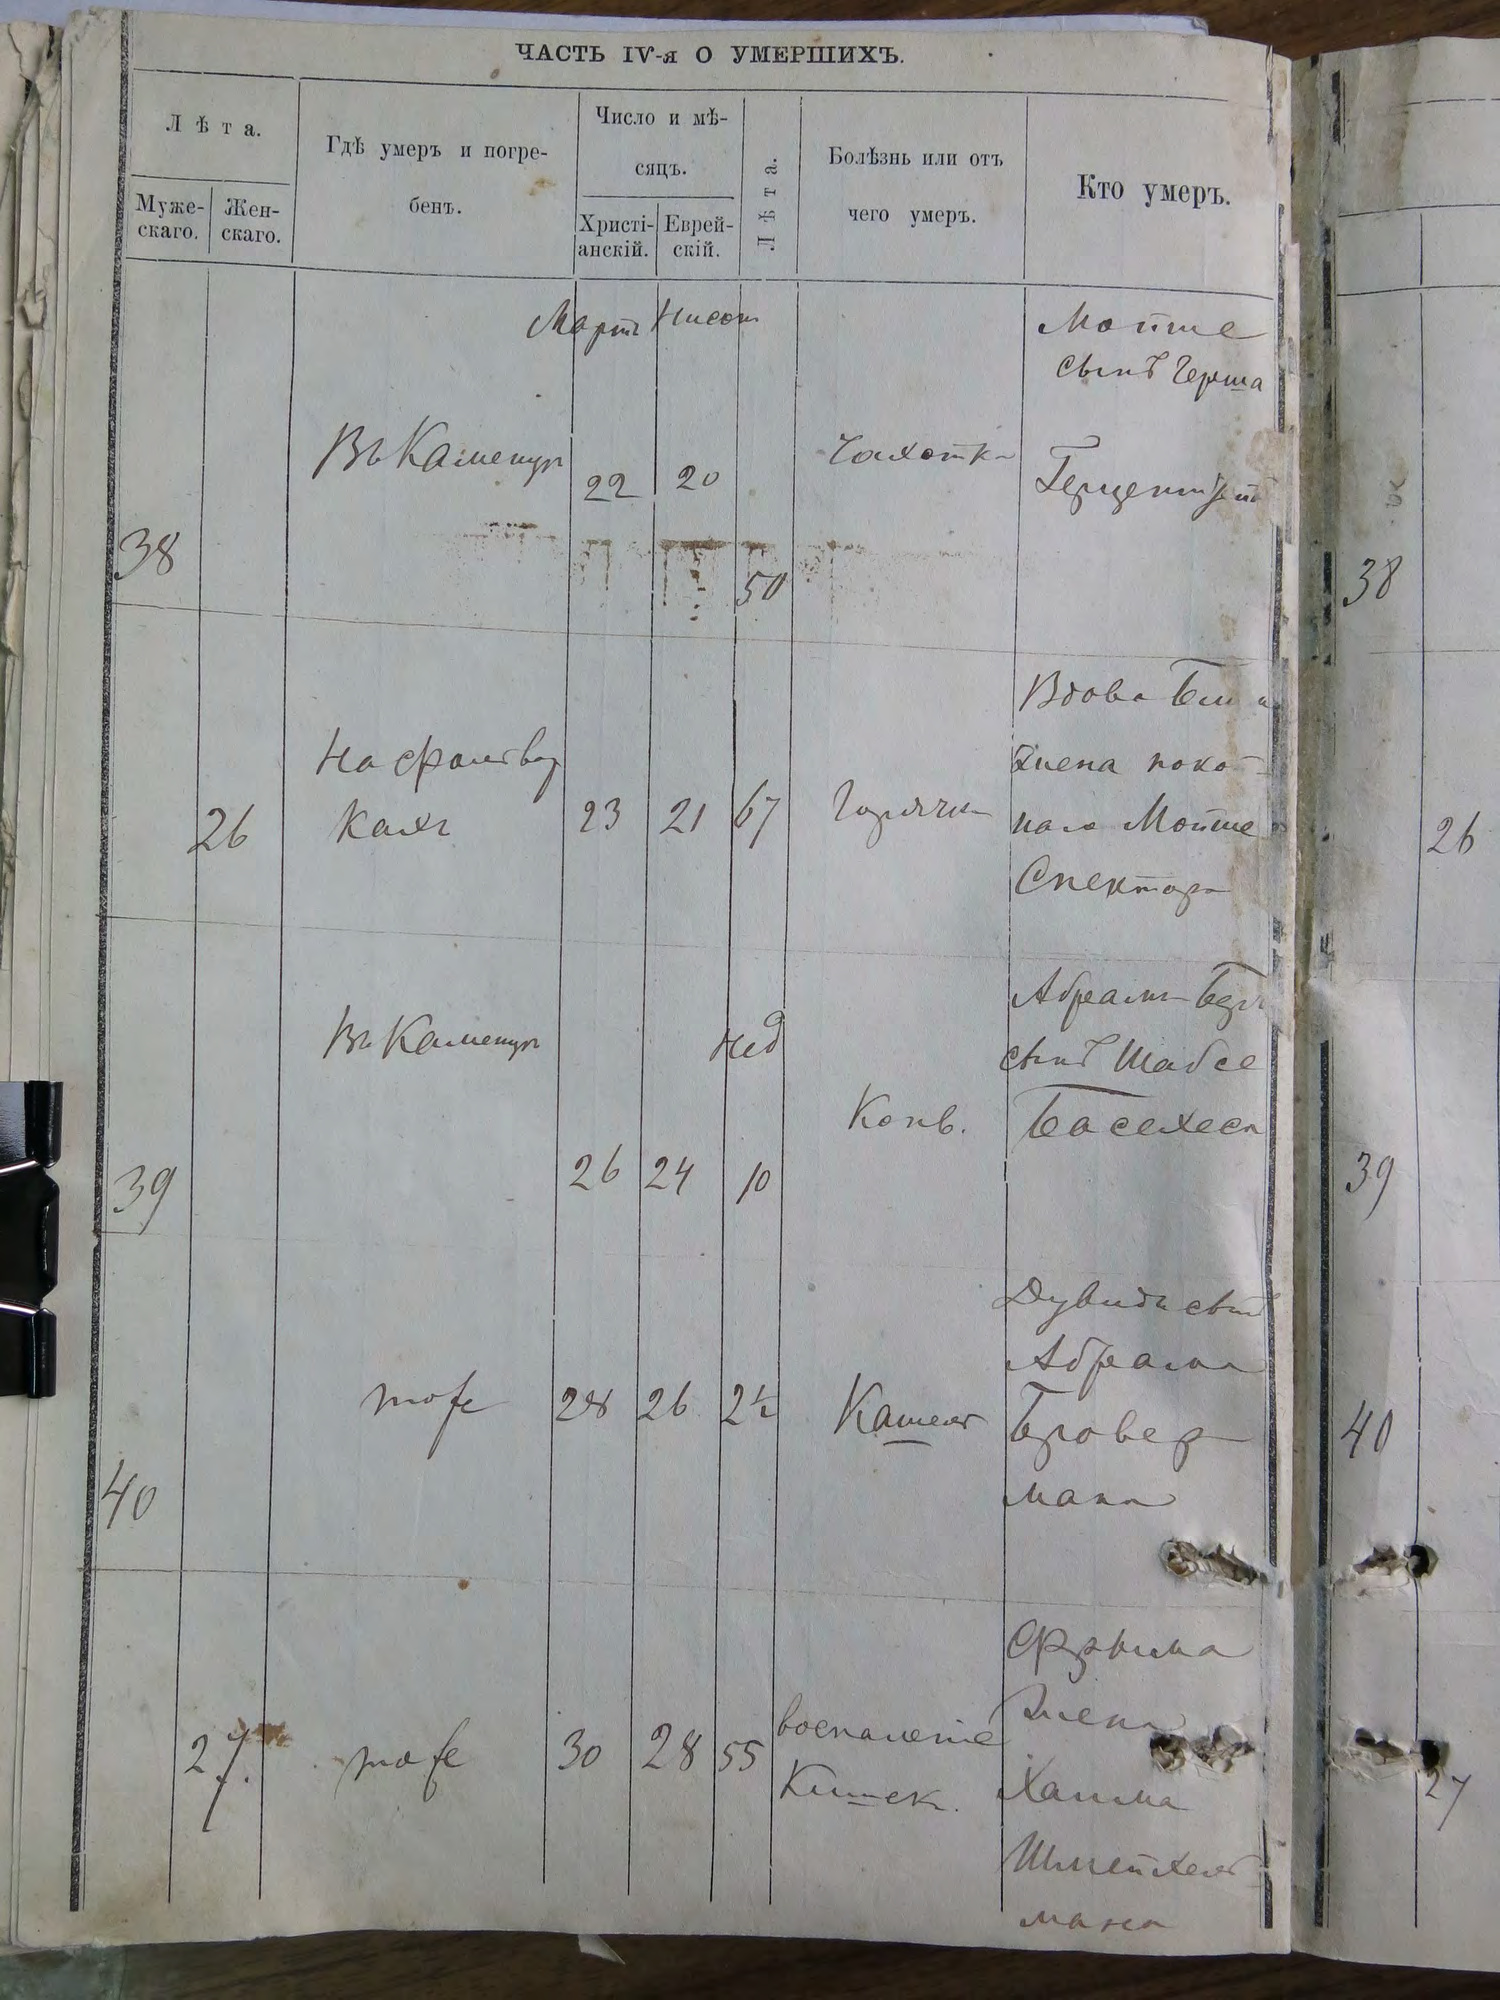 ЧАСТЬ IV-я О УМЕРШИХЪ.
Лѣта.
Муже-
скаго.
Жен-
скаго.
Гдѣ умеръ и погре-
бенъ.
Число и мѣ-
сяцъ.
Христі-
анскій.
Еврей-
скій.
Лѣта.
Болѣзнь или отъ
чего умеръ.
Кто умеръ.
Мартъ Нисонъ
38
Въ Каменцѣ
22
20
50
Чахотка
Мойше
сынъ Герша
38
26
На
23
21
67
Горячка
Вдова
жена покой
наго Мойше
Спектора
26
39
Въ Каменцѣ
26
24
Нед
10
Конв.
Абрамъ
сынъ Шабсе
Басехеса
39
40
тоже
28
26
2½
Кашель
Дувидъ сынъ
Абрама
Бровер
мана
40
27.
тоже
30
28
55
воспаленіе
Кишек.
Фрыма
жена
Хаима
мана
27